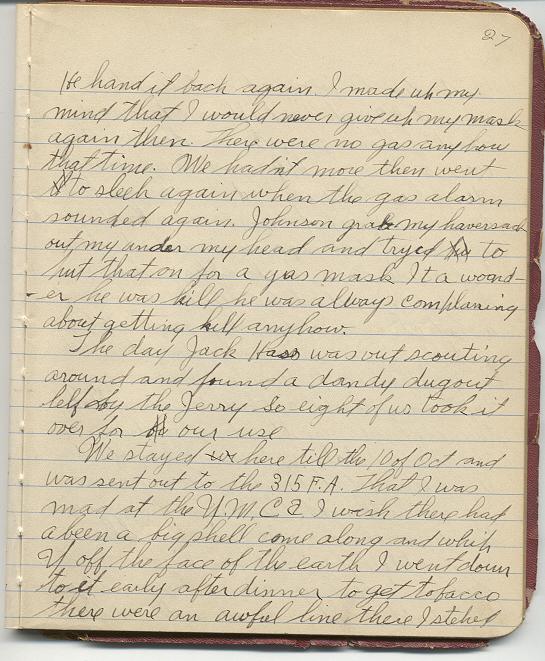 27
He hand it back again. I made uh my
mind that I would never give uh my mask
again then. There were no gas anyhow
that time. We hadnt more then went
to sleep again when the gas alarm
sounded again. Johnson grabe my haversack
out my under my head and tryed to
put that on for a gas mask. It a woard-
er he was kill he was always complaning
about getting kill anyhow.
The day Jack Hass was out scouting
around and found a dandy dugout
left by the Jerry so eight of us took it
over for our use
We stayed here till the 10 of Oct and
was sent out to the 315 F.A. That I was
mad at the Y.M.C.A I wish there had
a been a big shell come along and whip
Y off the face of the earth I went down
to it early after dinner to get tofacco
there were an awful line there I